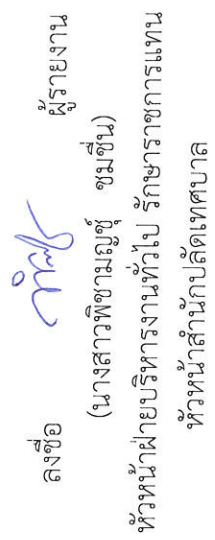 ลงชื่อ ผู้รายงาน
(นางสาวพิชามญชุ์ ชมชื่น)
หัวหน้าฝ่ายบริหารงานทั่วไป รักษาราชการแทน
หัวหน้าสำนักปลัดเทศบาล